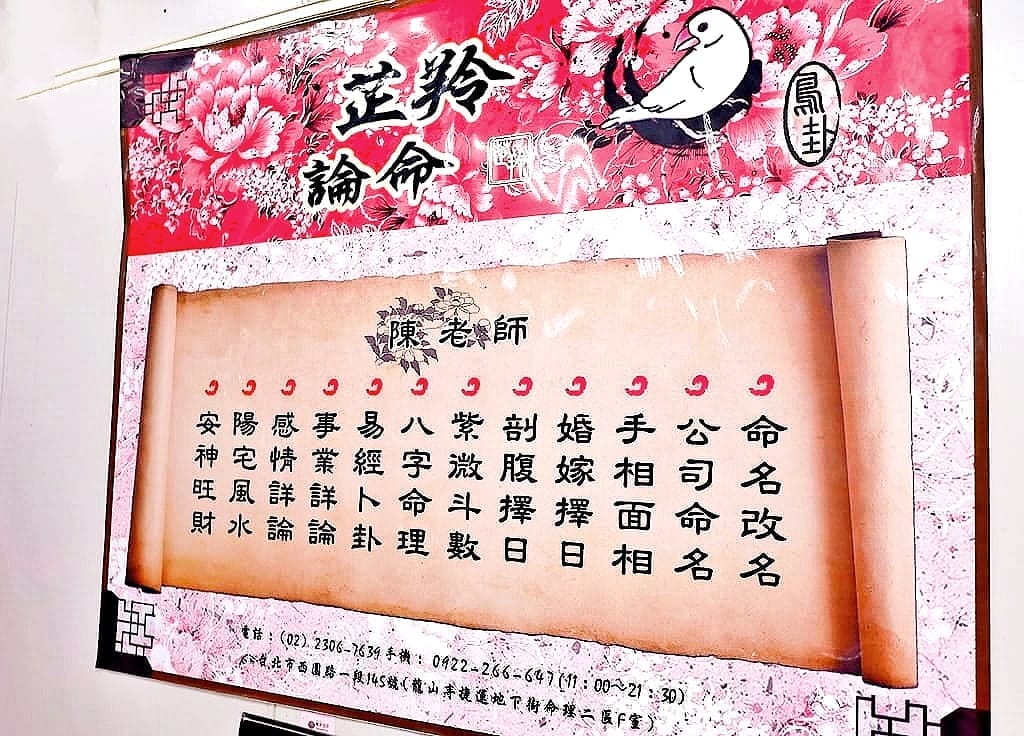 芷羚
論命
鳥卦
陳老師
命名改名
公司命名
手相面相
婚嫁擇日
剖腹擇日
紫微斗數
八字命理
易經卜卦
事業詳論
感情詳論
陽宅風水
安神旺財
電話：(02) 2306-7639 手機： 0922-266-647 (11：00～21：30)
台北市西園路一段145號(龍山寺捷運地下街命理二區F室)